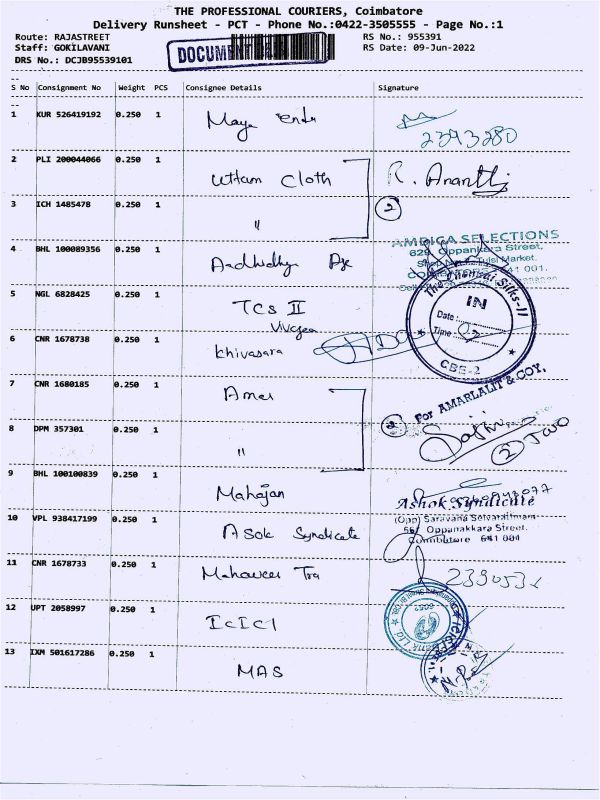 THE PROFESSIONAL COURIERS, Coimbatore
Delivery Runsheet - PCT - Phone No.:0422-3505555 - Page No.:1
Route: RAJASTREET RS No.: 955391
Staff: GOKILAVANI RS Date: 09-Jun-2022
DRS No.: DCJB95539101
DOCUMENT
S No Consignment No Weight PCS Consignee Details Signature
1 KUR 526419192 0.250 1 Maya
2393280
2 PLI 200044066 0.250 1 Uttam Cloth R. Ananthi
3 ICH 1485478 0.250 1 " 2
AMBICA SELECTIONS
629, Oppankara Street,
Tulsi Market.
641 001.
4 BHL 100089356 0.250 1
The Chennai Silks-II
IN
Date :
Time :
CBE-2
5 NGL 6828425 0.250 1 TCS II
6 CNR 1678738 0.250 1 khivasara
7 CNR 1680185 0.250 1 Amar
For AMARLALIT & COY.
8 DPM 357301 0.250 1 " 2
2 Two
9 BHL 100100839 0.250 1 Mahajan
Ashok Syndicate
(Opp) Saravana Selvarathinam
Oppanakkara Street.
Coimbatore 641 001
10 VPL 938417199 0.250 1 Asok Syndicate
11 CNR 1678733 0.250 1 Mahaveer Tra
12 UPT 2058997 0.250 1 ICICI
13 IXM 501617286 0.250 1 MAS